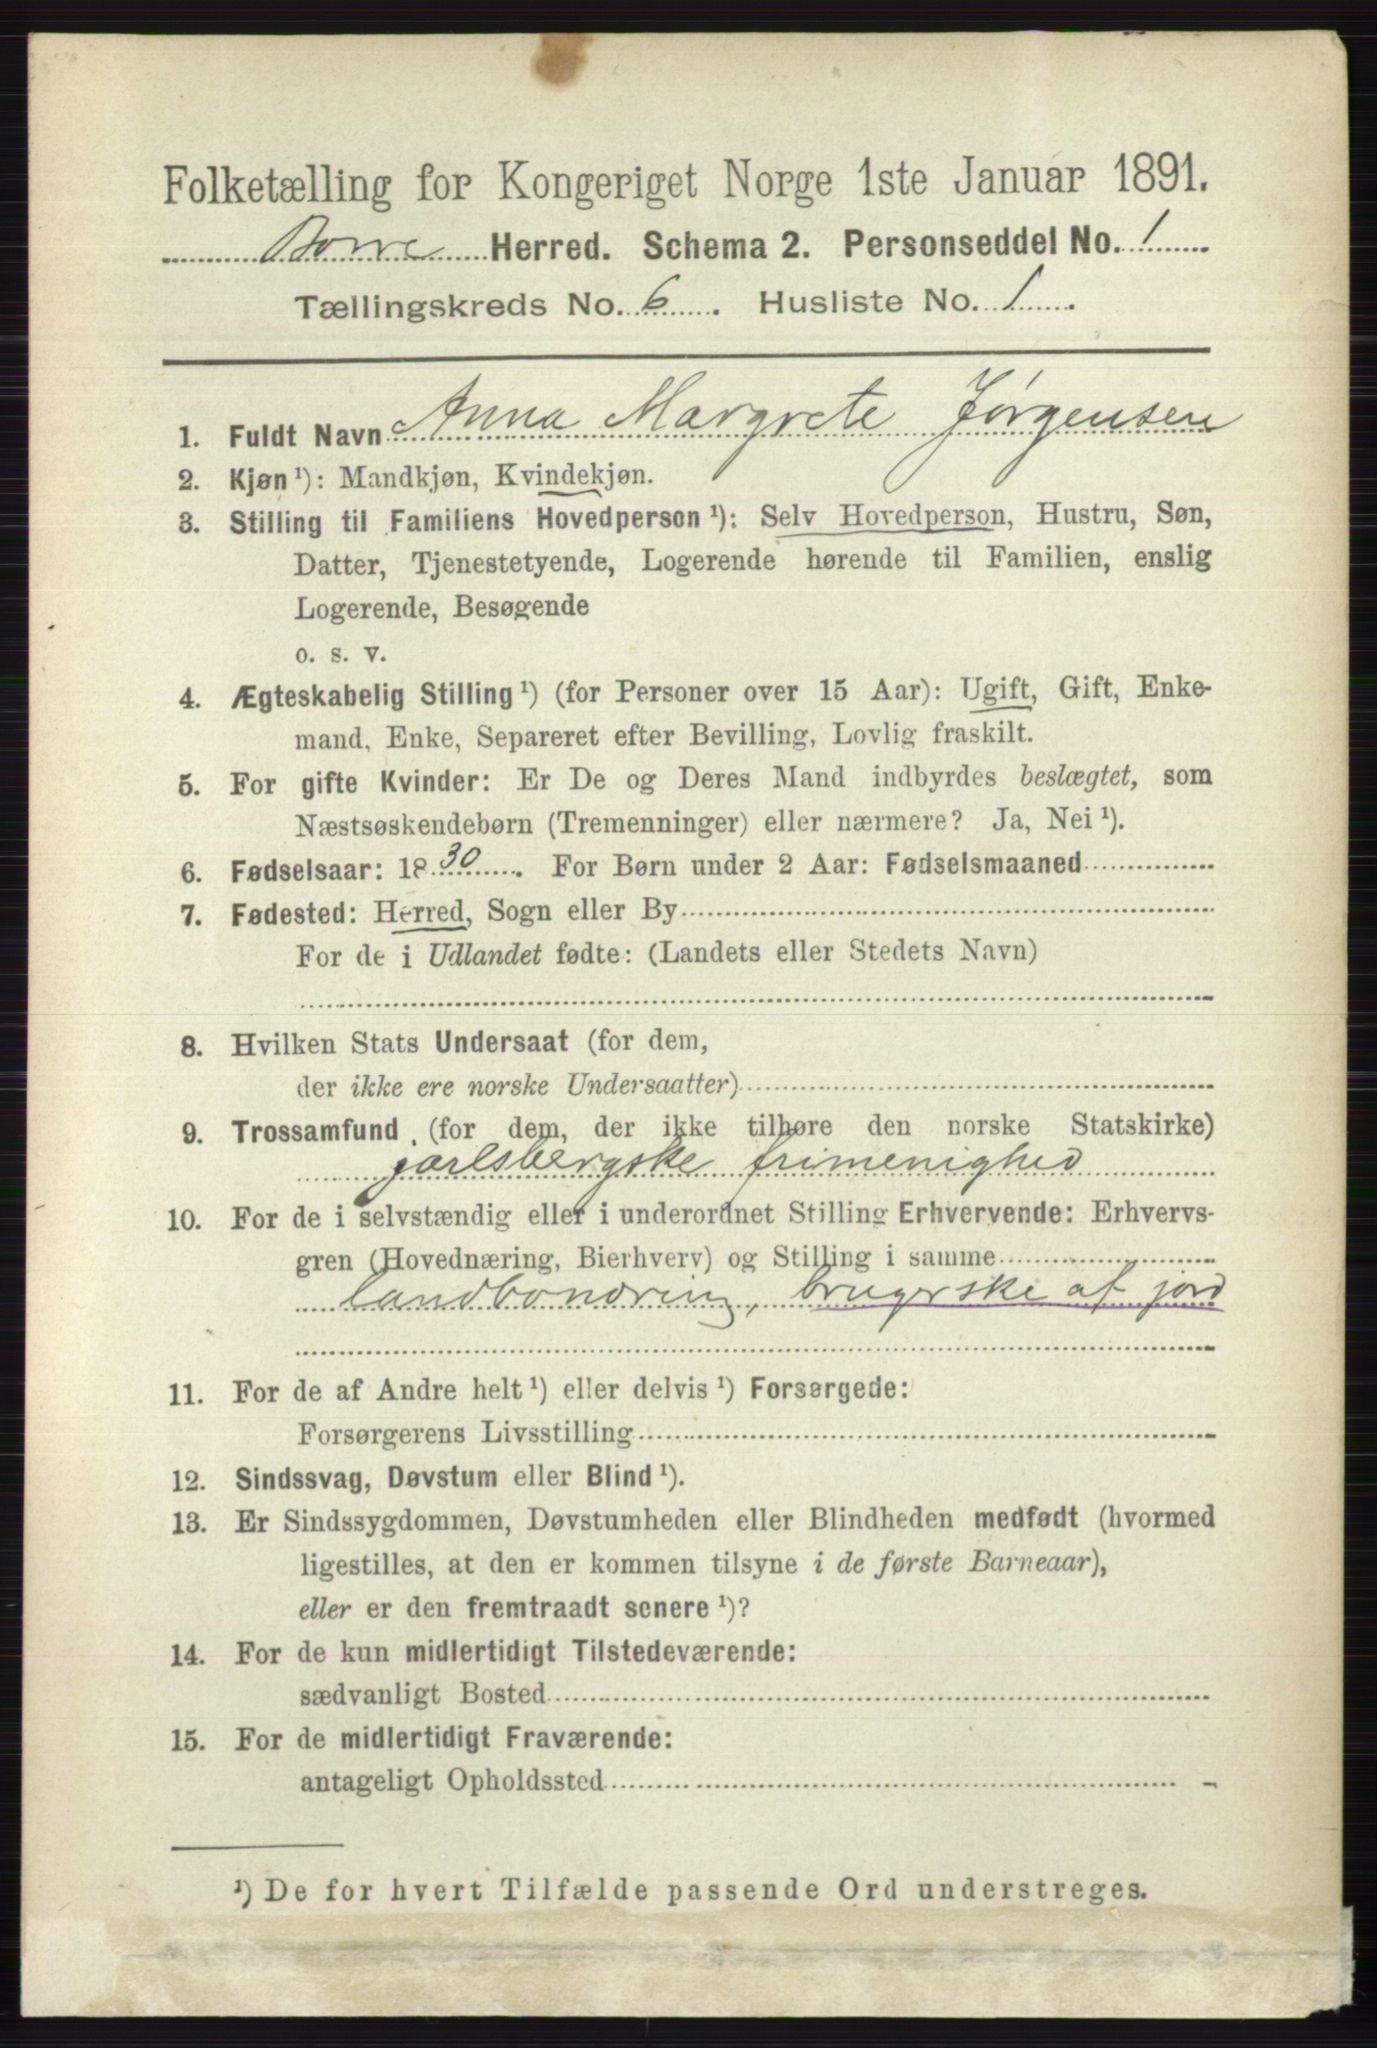 Folketælling for Kongeriget Norge 1ste Januar 1891.
Borre Herred. Schema 2. Personseddel No. 1
Tællingskreds No. 6. Husliste No. 1.
1. Fuldt Navn Anna Margrete Jørgensen
2. Kjøn¹): Mandkjøn, Kvindekjøn.
3. Stilling til Familiens Hovedperson¹): Selv Hovedperson, Hustru, Søn,
Datter, Tjenestetyende, Logerende hørende til Familien, enslig
Logerende, Besøgende
o. s. v.
4. Ægteskabelig Stilling¹) (for Personer over 15 Aar): Ugift, Gift, Enke-
mand, Enke, Separeret efter Bevilling, Lovlig fraskilt.
5. For gifte Kvinder: Er De og Deres Mand indbyrdes beslægtet, som
Næstsøskendebørn (Tremenninger) eller nærmere? Ja, Nei¹).
6. Fødselsaar: 1830. For Børn under 2 Aar: Fødselsmaaned
7. Fødested: Herred, Sogn eller By
For de i Udlandet fødte: (Landets eller Stedets Navn)
8. Hvilken Stats Undersaat (for dem,
der ikke ere norske Undersaatter)
9. Trossamfund (for dem, der ikke tilhøre den norske Statskirke)
jarlsbergske frimenighed
10. For de i selvstændig eller i underordnet Stilling Erhvervende: Erhvervs-
gren (Hovednæring, Bierhverv) og Stilling i samme
landbondring, brugerske af jord
11. For de af Andre helt¹) eller delvis¹) Forsørgede:
Forsørgerens Livsstilling
12. Sindssvag, Døvstum eller Blind¹).
13. Er Sindssygdommen, Døvstumheden eller Blindheden medfødt (hvormed
ligestilles, at den er kommen tilsyne i de første Barneaar),
eller er den fremtraadt senere¹)?
14. For de kun midlertidigt Tilstedeværende:
sædvanligt Bosted
15. For de midlertidigt Fraværende:
antageligt Opholdssted
¹) De for hvert Tilfælde passende Ord understreges.